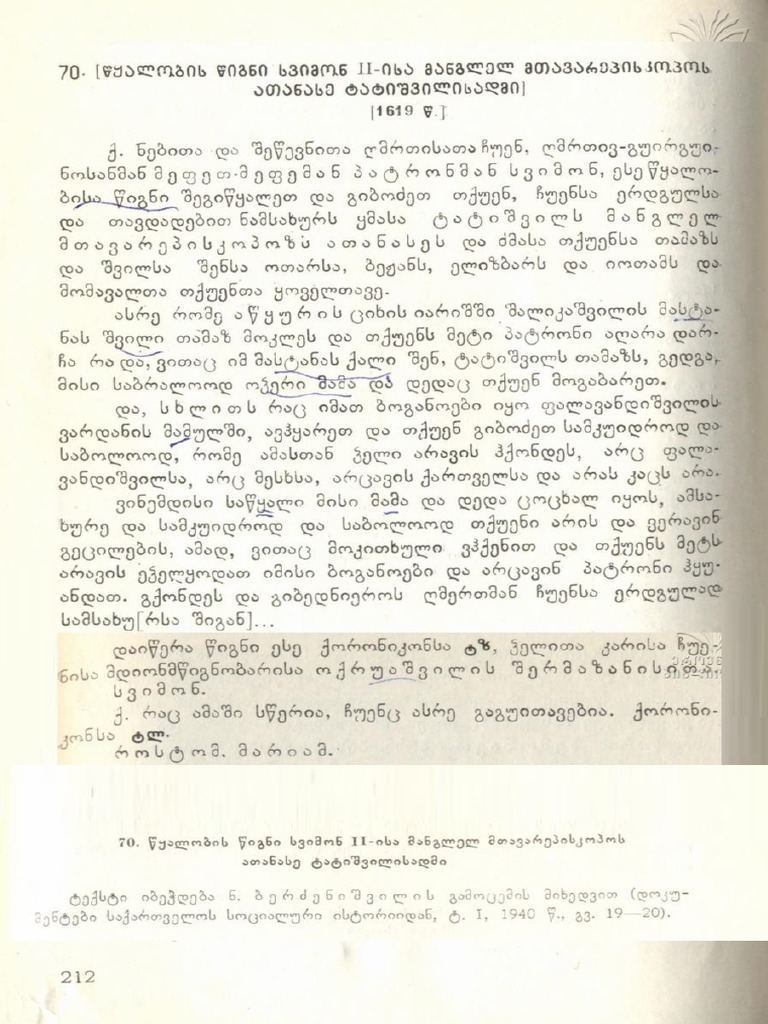 70. [წყალობის წიგნი სვიმონ II-ისა მანგლელ მთავარეპისკოპოს
ათანასე ტატიშვილისადმი]
[1619 წ.]
ქ. ნებითა და შეწევნითა ღმრთისათა ჩუენ, ღმრთივ-გუირგუი-
ნოსანმან მეფეთ-მეფემან პატრონმან სვიმონ, ესე წყალო-
ბისა წიგნი შეგიწყალეთ და გიბოძეთ თქუენ, ჩუენსა ერდგულსა
და თავდადებით ნამსახურს ყმასა ტატიშვილს მანგლელ
მთავარეპისკოპოზს ათანასეს და ძმასა თქუენსა თამაზს
და შვილსა შენსა ოთარსა, ბეჟანს, ელიზბარს და იოთამს და
მომავალთა თქუენთა ყოველთავე.
ასრე რომე აწყურის ციხის იარიშში შალიკაშვილის მასტა-
ნას შვილი თამაზ მოკლეს და თქუენს მეტი პატრონი აღარა დარ-
ჩა რა და, ვითაც იმ მასტანას ქალი შენ, ტატიშვილს თამაზს, გედგა,
მისი საბრალოოდ ოჴერი მამა და დედაც თქუენ მოგაბარეთ.
და, სხლითს რაც იმათ ბოგანოები იყო ფალავანდიშვილის
ვარდანის მამულში, ავჰყარეთ და თქუენ გიბოძეთ სამკუიდროდ და
საბოლოოდ, რომე ამასთან ჴელი არავის ჰქონდეს, არც ფალა-
ვანდიშვილსა, არც მესხსა, არცავის ქართველსა და არას კაცს არა.
ვინემდისი საწყალი მისი მამა და დედა ცოცხალ იყოს, ამსა-
ხურე და სამკუიდროდ და საბოლოოდ თქუენი არის და ვერავინ
გეცილების, ამად, ვითაც მოკითხული ვჰქენით და თქუენს მეტს
არავის ეჴელყოდათ იმისი ბოგანოები და არცავინ პატრონი ჰყუ-
ანდათ. გქონდეს და გიბედნიეროს ღმერთმან ჩუენსა ერდგულად
სამსახუ[რსა შიგან]...
დაიწერა წიგნი ესე ქორონიკონსა ტზ, ჴელითა კარისა ჩუე-
ნისა მდიონმწიგნობარისა ოქრუაშვილის შერმაზანისითა.
სვიმონ.
ქ. რაც ამაში სწერია, ჩუენც ასრე გაგუითავებია. ქორონი-
კონსა ტლ.
როსტომ. მარიამ.
70. წყალობის წიგნი სვიმონ II-ისა მანგლელ მთავარეპისკოპოს
ათანასე ტატიშვილისადმი
ტექსტი იბეჭდება ნ. ბერძენიშვილის გამოცემის მიხედვით (დოკუ-
მენტები საქართველოს სოციალური ისტორიიდან, ტ. I, 1940 წ., გვ. 19—20).
212